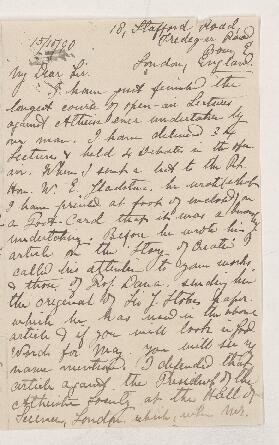 18, Stafford Road,
Tredegar Road
Bow, E.
15/10/90
London, England.
My Dear Sir.
I have just finished the
longest course of open-air Lectures
against Atheism ever undertaken by
one man. I have delivered 34
Lectures & held 4 Debates in the open
air. When I sent a list to the Rt.
Hon. W. E. Gladstone. he wrote what
I have printed at foot of enclosed on
a Post-Card that it was a
undertaking. Before he wrote his
article on the Story of Creation I
called his attention to your works.
& those of Prof. Dana. sending him
the original of his & Stokes paper.
which he has used in the above
article & if you will look in Good
Words for May you will see my
name mentioned. I defended that
article against the President of the
Atheistic Society at the Hall of
Science, London, which, with